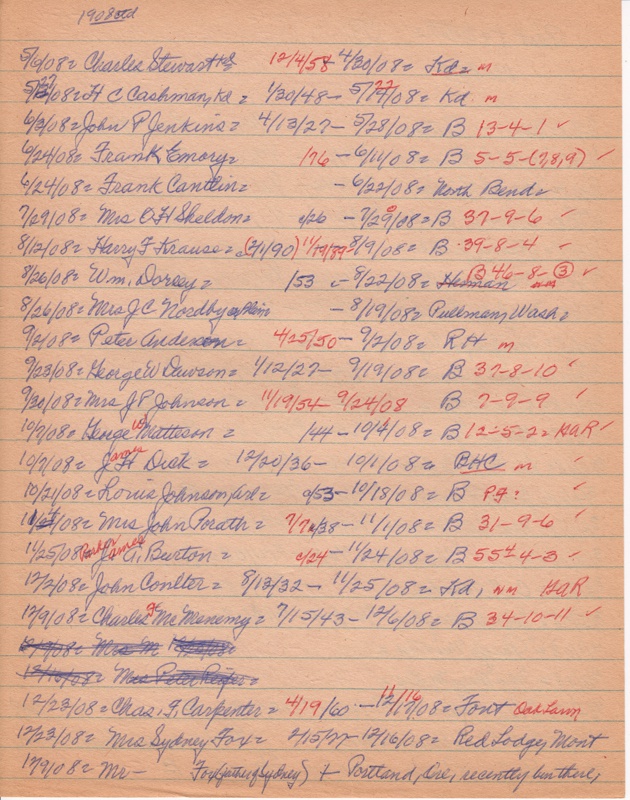 1908 std
5/9/08= Charles Stewart 12/4/58 - 4/30/08= Kd= m
5/27/08= H C Cashman, Kd= 1/30/48 - 5/22/08= Kd. m
6/3/08= John P Jenkins= 4/13/27 - 5/28/08= B 13-4-1 ✓
6/24/08= Frank Emory= /76 - 6/11/08= B 5-5-(7,8,9) ✓
6/24/08= Frank Cantlin= - 6/22/08= North Bend=
7/29/08= Mrs O H Sheldon= c/26 - 7/20/08= B 37-9-6 ✓
8/12/08= Harry F Krause= (7/1/90) 11/19/89 - 8/9/08= B 39-8-4 ✓
8/26/08= Wm, Dorsey= /53 - 8/22/08= B 46-8-3 ✓
8/26/08= Mrs J C Nordby - 8/19/08= Pullman, Wash=
9/2/08= Peter Anderson= 4/25/50 - 9/2/08= R H m
9/23/08= George W Dawson= 1/12/27 - 9/19/08= B 37-8-10 ✓
9/30/08= Mrs J P Johnson= 11/19/54 - 9/24/08 B 7-9-9 ✓
10/7/08= George W Matteson= /44 - 10/4/08= B 12-5-2= GAR ✓
10/7/08= James H Disk= 12/20/36 - 10/1/08= BHC m ✓
10/21/08= Louis Johnson, c/53 - 10/18/08= B P9? ✓
Mrs John Porath= 7/7/38 - 11/1/08= B 31-9-6 ✓
11/25/08= Parker James A, Burton= c/24 - 11/24/08= B 55-4-3 ✓
12/2/08= John Coulter= 8/13/32 - 11/25/08= Kd, nm GAR
12/9/08= Charles McMenemy= 7/15/43 - 12/6/08= B 34-10-11 ✓
Mrs M
Mrs Peter
12/23/08= Chas, F, Carpenter= 4/19/60 - 12/16/08= Font
12/23/08= Mrs Sydney Fox= - 12/16/08= Red Lodge, Mont
12/9/08= Mr - Fox (father of Sydney) + Portland, Ore, recently bur there,